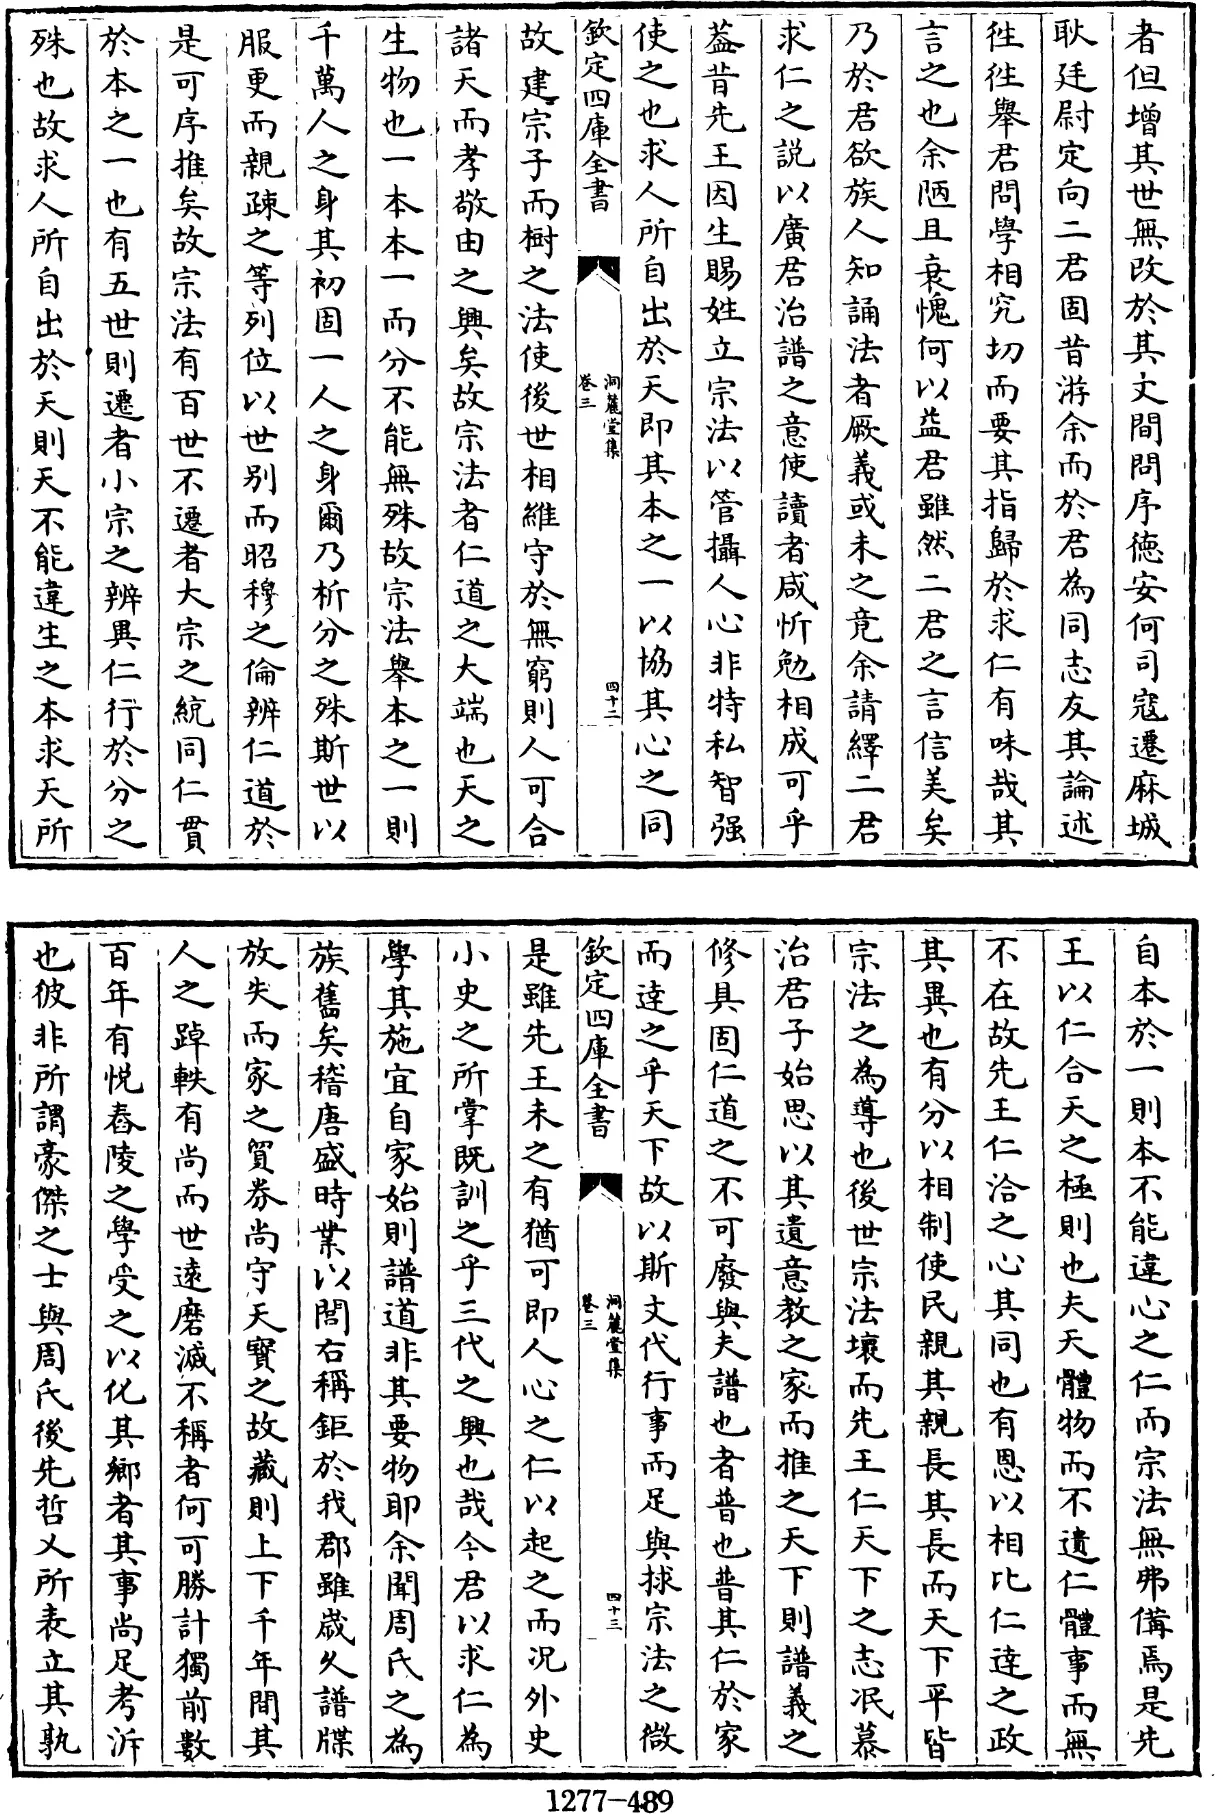 者但增其世無改於其文間問序德安何司寇遷麻城
耿廷尉定向二君固昔游余而於君為同志友其論述
徃徃舉君問學相究切而要其指歸於求仁有味哉其
言之也余陋且衰愧何以益君雖然二君之言信美矣
乃於君欲族人知誦法者厥義或未之竟余請繹二君
求仁之説以廣君治譜之意使讀者咸忻勉相成可乎
葢昔先王因生賜姓立宗法以管攝人心非特私智强
使之也求人所自出於天即其本之一以協其心之同
欽定四庫全書
洞麓堂集
卷三
四十二
故建宗子而樹之法使後世相維守於無窮則人可合
諸天而孝敬由之興矣故宗法者仁道之大端也天之
生物也一本本一而分不能無殊故宗法舉本之一則
千萬人之身其初固一人之身爾乃析分之殊斯世以
服更而親疎之等列位以世别而昭穆之倫辨仁道於
是可序推矣故宗法有百世不遷者大宗之統同仁貫
於本之一也有五世則遷者小宗之辨異仁行於分之
殊也故求人所自出於天則天不能違生之本求天所
自本於一則本不能違心之仁而宗法無弗備焉是先
王以仁合天之極則也夫天體物而不遺仁體事而無
不在故先王仁洽之心其同也有恩以相比仁逹之政
其異也有分以相制使民親其親長其長而天下平皆
宗法之為導也後世宗法壞而先王仁天下之志泯慕
治君子始思以其遺意教之家而推之天下則譜義之
修具固仁道之不可廢與夫譜也者普也普其仁於家
而逹之乎天下故以斯文代行事而足與捄宗法之微
欽定四庫全書
洞麓堂集
卷三
四十三
是雖先王未之有猶可即人心之仁以起之而况外史
小史之所掌既訓之乎三代之興也哉今君以求仁為
學其施宜自家始則譜道非其要物耶余聞周氏之為
族舊矣稽唐盛時業以閭右稱鉅於我郡雖歳久譜牒
放失而家之貿劵尚守天寳之故藏則上下千年間其
人之踔軼有尚而世逺磨滅不稱者何可勝計獨前數
百年有悦舂陵之學受之以化其鄉者其事尚足考泝
也彼非所謂豪傑之士與周氏後先哲乂所表立其孰
1277-489